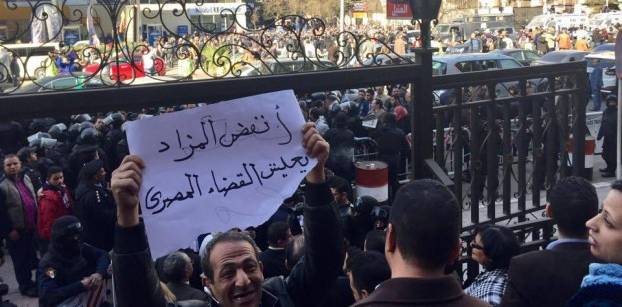 أ نفض المزاد
يعيش القضاء المصرى